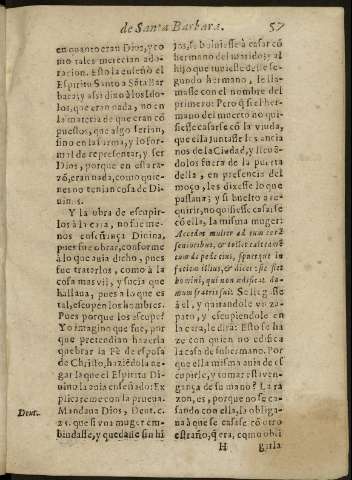 de Santa Barbara.
57
en quanto eran Dios, y co
mo tales merecian ado-
racion. Esto la enseñó el
Espiritu Santo a Sãta Bar
bara; y assi dixo a los Ido-
los, que eran nada, no en
la materia de que eran cõ
puestos, que algo serian,
sino en la forma, y lo for-
mal de representar, y ser
Dios, porque en esta ra-
zõ, eran nada, como quie-
nes no tenian cosa de Di-
uinos.
Y la obra de escupir-
los à la cara, no fue me-
nos enseñança Diuina,
pues fue obrar, conforme
à lo que auia dicho, pues
fue tratarlos, como à la
cosa mas vil, y sucia que
hallaua, pues a lo que es
tal, escupen los hombres.
Pues porque los escupe?
Yo imagino que fue, por
que pretendian hazerla
quebrar la Fè de esposa
de Christo, haziẽdola ne-
gar la que el Espiritu Di-
uino la auia enseñado: Ex
plicareme con la prueua.
Mandaua Dios, Deut. c.
25. que si vna muger em-
biudasse, y quedasse sin hi
Deut.
jos, se boluiesse à casar cõ
hermano del marido; y al
hijo que tuuiesse deste se-
gundo hermano, le lla-
masse con el nombre del
primero: Pero q̃ si el her-
mano del muerto no qui-
siesse casarse cõ la viuda,
que ella juntasse los ancia
nos de la Ciudad, y lleuã-
dolos fuera de la puerta
della, en presencia del
moço, les dixesse lo que
passaua; y si buelto a re-
quirir, no quisiesse casarse
cõ ella, la misma muger:
Accedet mulier ad eum corã
senioribus, & tollet calceamẽ
tum de pede eius, spuetque in
faciem illius, & dicet: sic fiet
homini, qui non ædificat do-
mum fratris sui: Se llegasse
à el, y quitandole vn za-
pato, y escupiendole en
la cara, le dirà: Esto se ha
ze con quien no edifica
la casa de su hermano. Por
que ella misma auia de es
cupirle, y tomar esta ven-
gança de su mano? La ra
zon, es, porque no se ca-
sando con ella, la obliga-
ua à que se casare cõ otro
estraño, q̃ era, como obli
H
garla